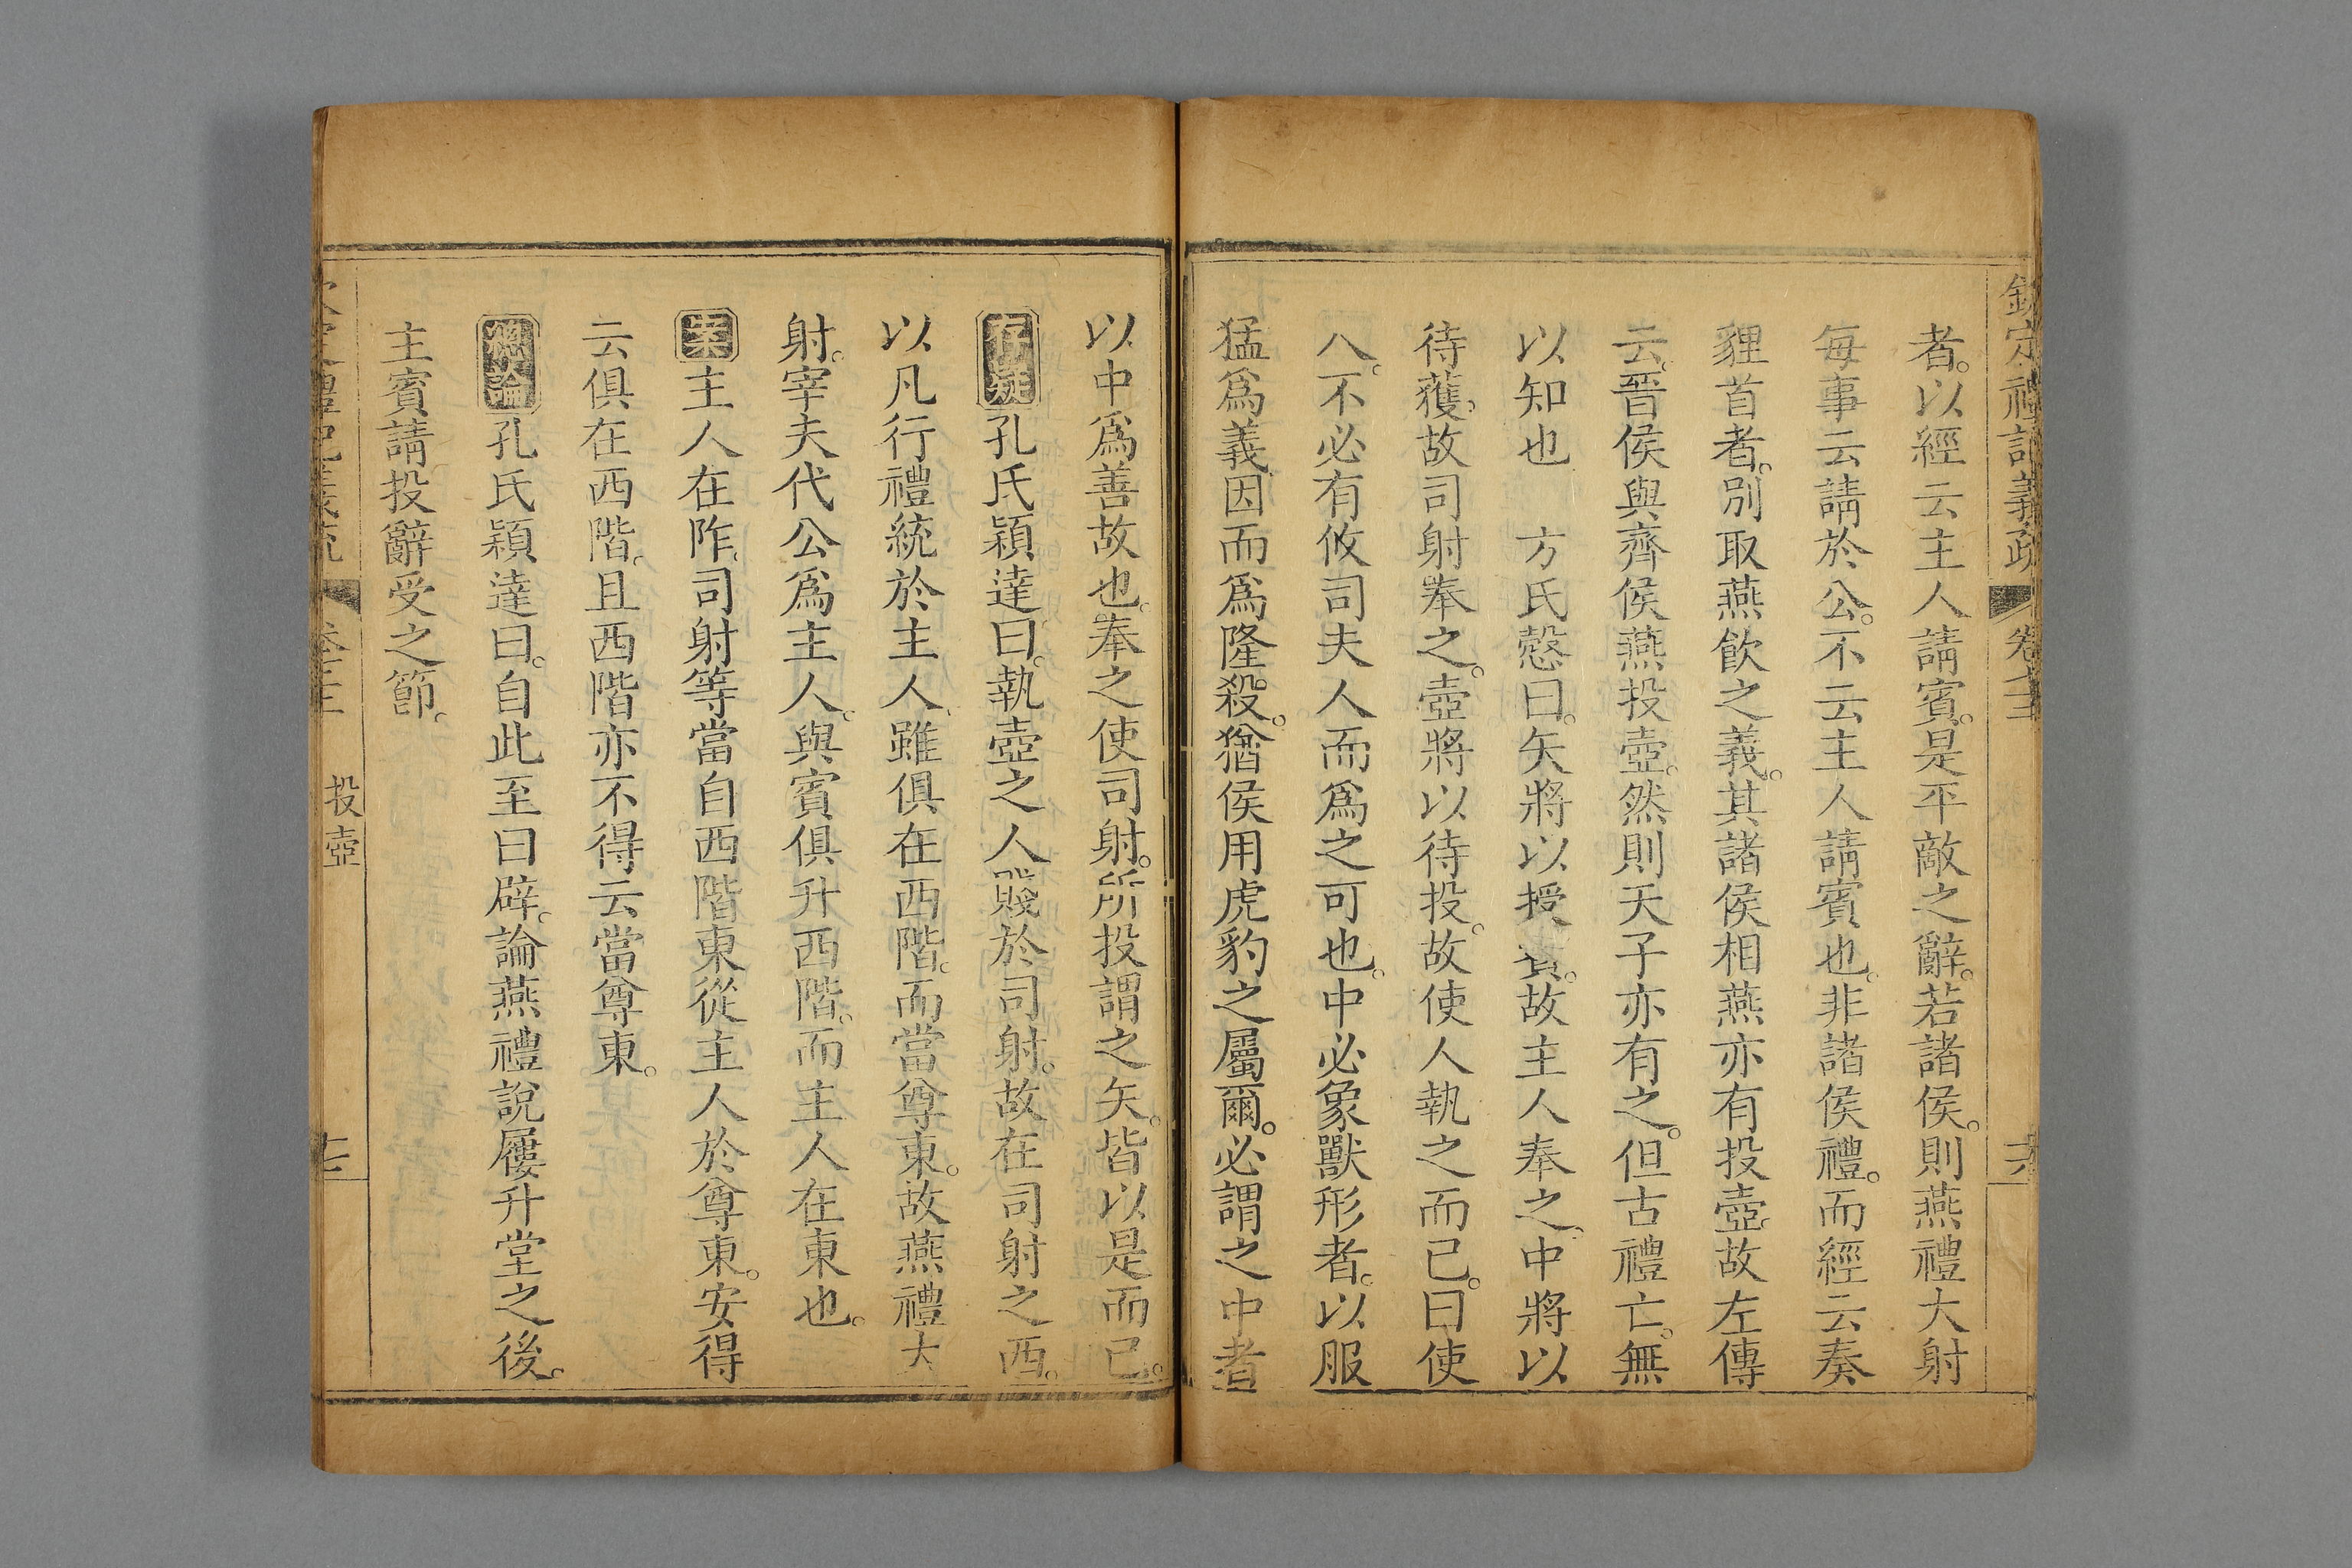 欽定禮記義疏 卷 六
者。以經云主人請賓。是平敵之辭。若諸侯。則燕禮大射
每事云請於公。不云主人請賓也。非諸侯禮。而經云奏
貍首者。別取燕飲之義。其諸侯相燕亦有投壺。故左傳
云。晉侯與齊侯燕投壺。然則天子亦有之。但古禮亡。無
以知也 方氏慤曰。矢將以授賓。故主人奉之。中將以
待獲。故司射奉之。壺將以待投。故使人執之而已。曰使
人。不必有攸司夫人而爲之可也。中必象獸形者。以服
猛爲義。因而爲隆殺。猶侯用虎豹之屬爾。必謂之中者
以中爲善故也。奉之使司射。所投謂之矢。皆以是而已。
存疑孔氏穎達曰。執壺之人賤於司射。故在司射之西。
以凡行禮統於主人。雖俱在西階。而當尊東。故燕禮大
射。宰夫代公爲主人。與賓俱升西階。而主人在東也。
案主人在阼。司射等當自西階東從主人於尊東。安得
云俱在西階。且西階亦不得云當尊東。
總論孔氏穎達曰。自此至曰辟。論燕禮說屨升堂之後。
主賓請投辭受之節。
禮記義疏 投壺 七